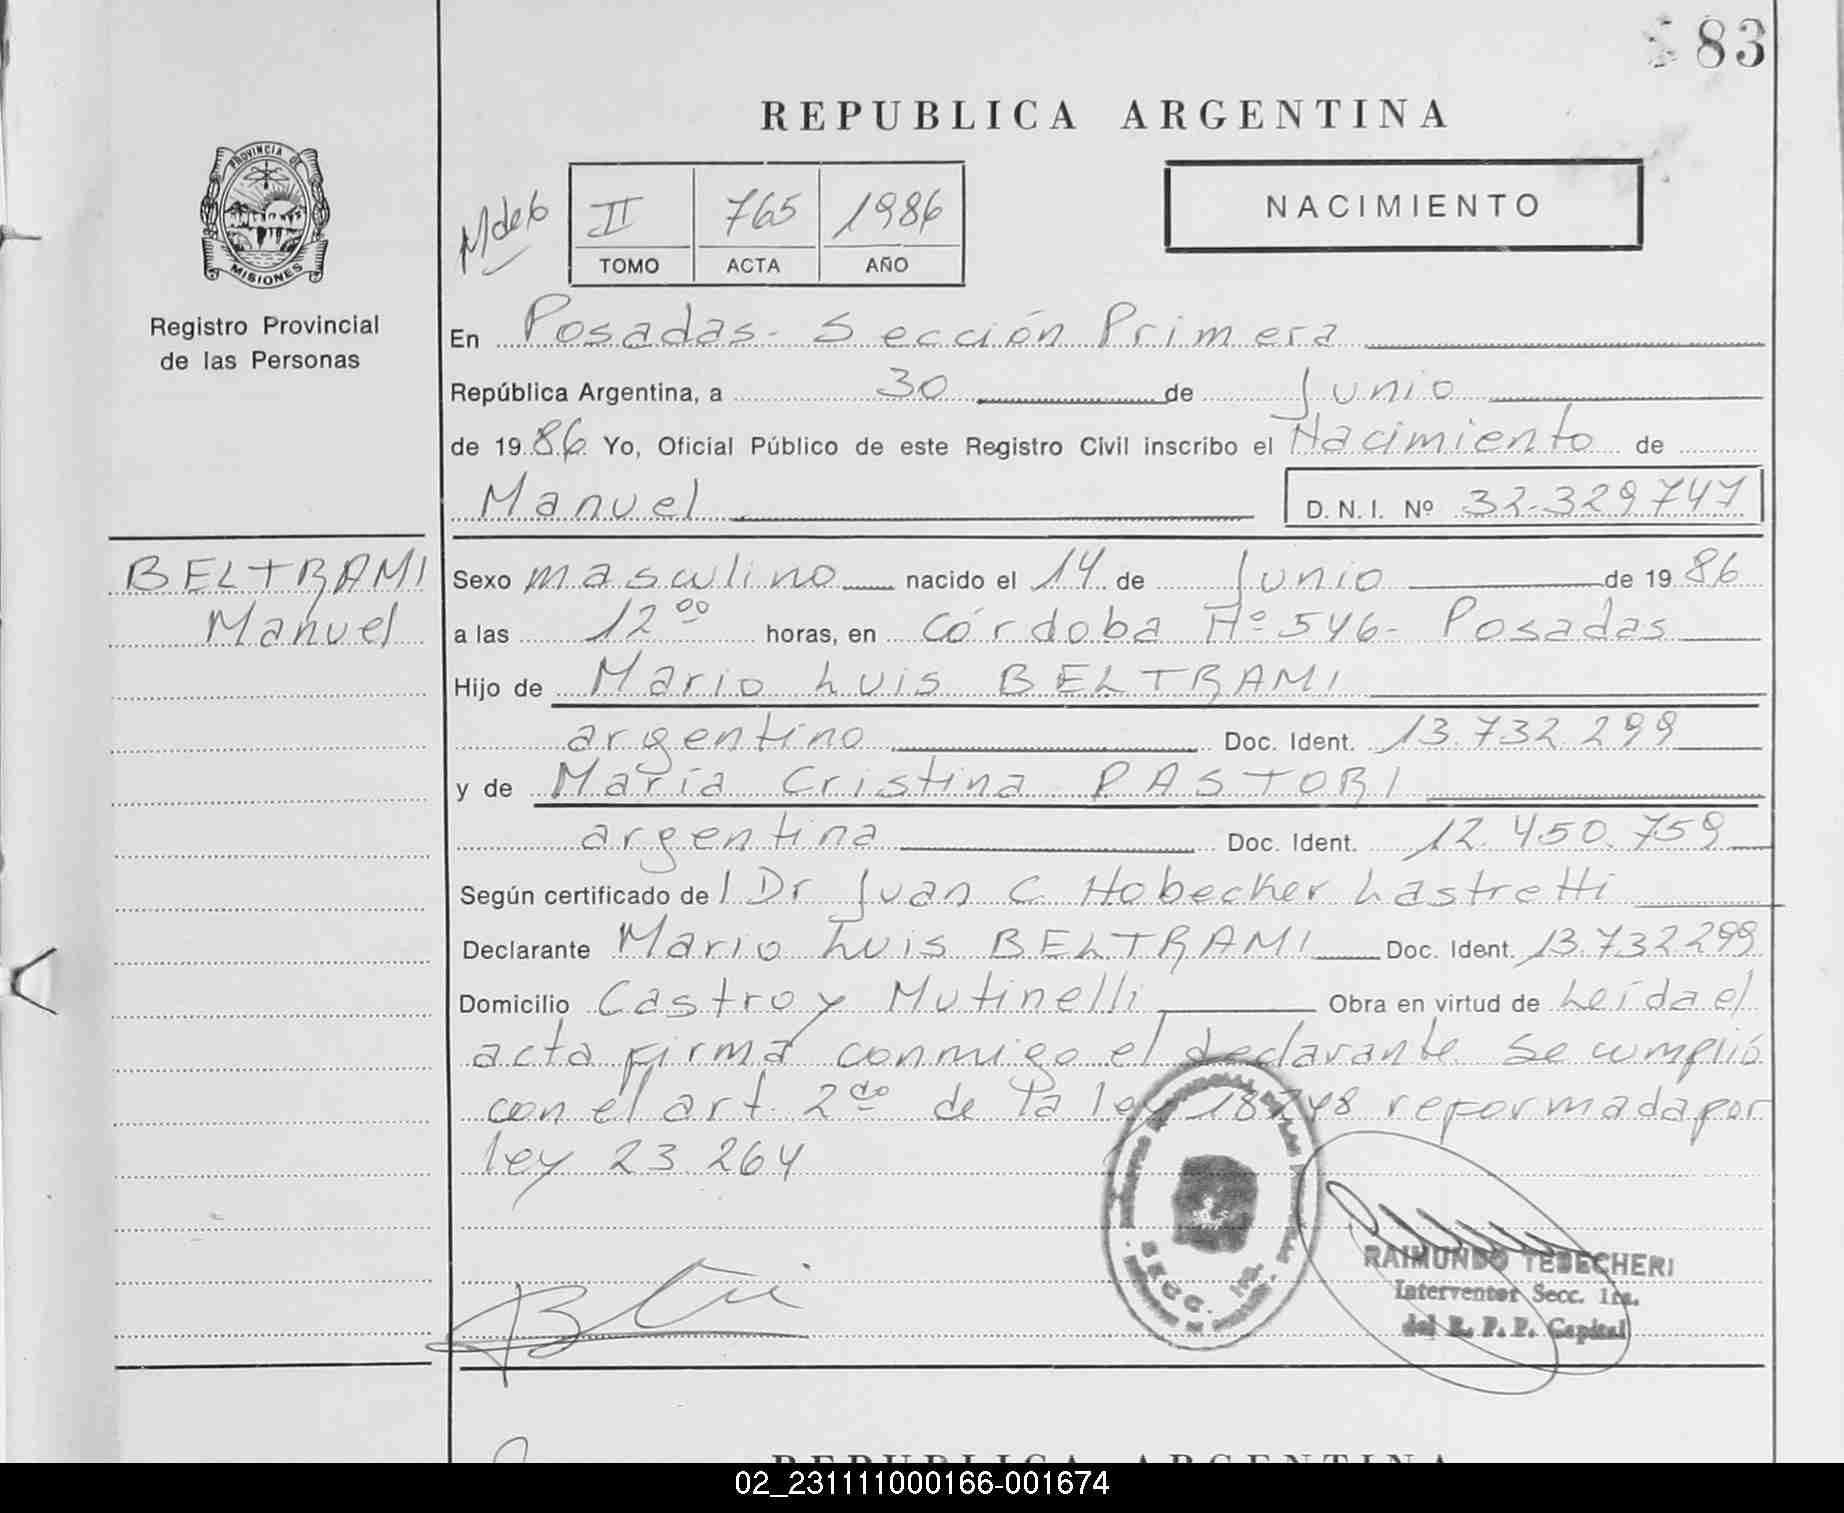 83
REPUBLICA ARGENTINA
PROVINCIA DE
MISIONES
Registro Provincial
de las Personas
II 765 1986
TOMO ACTA AÑO
NACIMIENTO
En Posadas- Sección Primera
República Argentina, a 30 de Junio
de 1986 Yo, Oficial Público de este Registro Civil inscribo el Nacimiento de
Manuel D.N.I. Nº 32.329747
BELTRAMI
Manuel
Sexo masculino nacido el 14 de Junio de 1986
a las 12 00 horas, en Córdoba Nº 546- Posadas
Hijo de Mario Luis BELTRAMI
argentino Doc. Ident. 13.732.299
y de María Cristina PASTORI
argentina Doc. Ident. 12.450.759
Según certificado del Dr Juan C Hobecker Lastretti
Declarante Mario Luis BELTRAMI Doc. Ident. 13.732299
Domicilio Castro y Mutinelli Obra en virtud de Leída el
acta firma conmigo el declarante se cumplió
con el art. 2do de la ley 18248 reformada por
ley 23.264
RAIMUNDO TEDECHERI
Interventor Secc. 1ra.
del R. P. P. Capital
REPUBLICA ARGENTINA
02_231111000166-001674